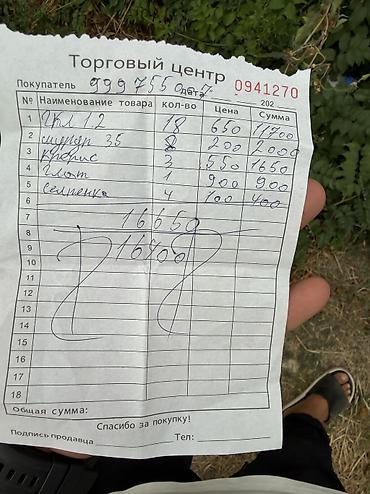 Торговый центр
Покупатель 999755 дата 0941270
202
№ Наименование товара кол-во Цена Сумма
1 ГКЛ 12 18 650 11700
2 шуруп 35 200 2000
3 3 550 1650
4 1 900 900
5 серпянка 4 100 400
6
7 16650
8
9 16400
10
11
12
13
14
15
16
17
18
Общая сумма:
Спасибо за покупку!
Подпись продавца Тел: